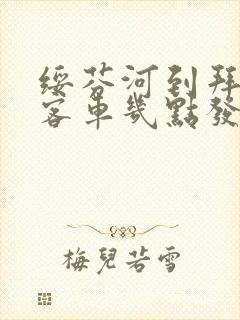 绥芬河到拜
客車幾點發
梅兒若雪